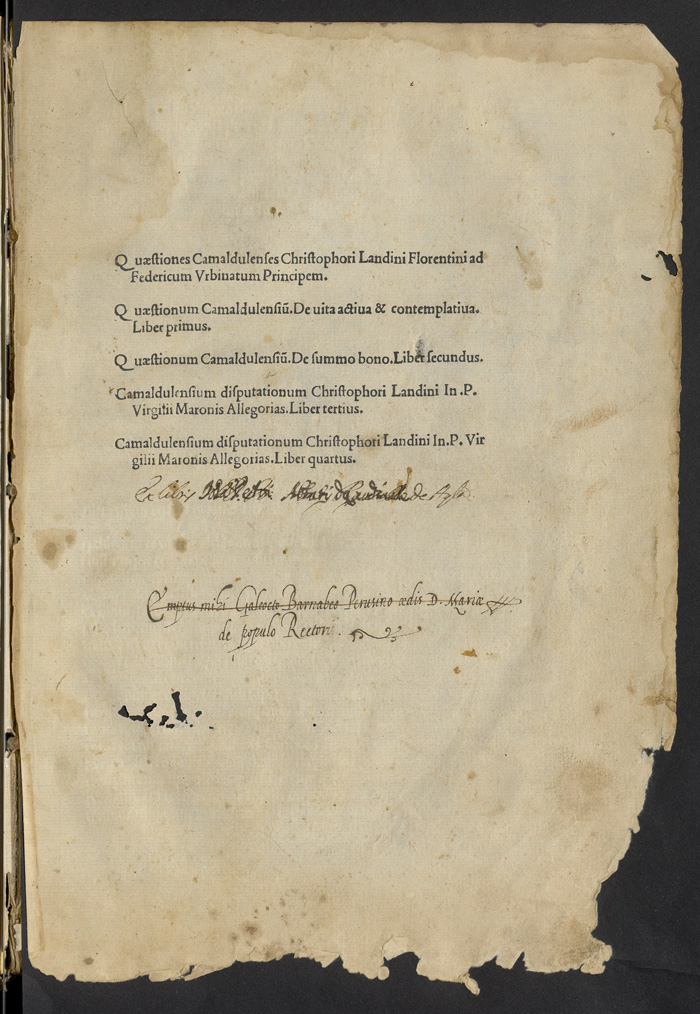 Quæstiones Camaldulenses Christophori Landini Florentini ad
Federicum Vrbinatum Principem.
Quæstionum Camaldulensiū. De uita actiua & contemplatiua.
Liber primus.
Quæstionum Camaldulensiū. De summo bono. Liber secundus.
Camaldulensium disputationum Christophori Landini In .P.
Virgilii Maronis Allegorias. Liber tertius.
Camaldulensium disputationum Christophori Landini In .P. Vir
gilii Maronis Allegorias. Liber quartus.
Ex libris de
Emptus mihi Galeocto Barnabeo Perusino ædis D. Mariæ
de populo Rectori.